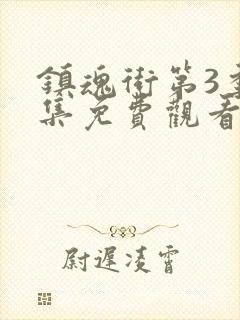 鎮魂街第3季
集免費觀看
尉遲凌霄